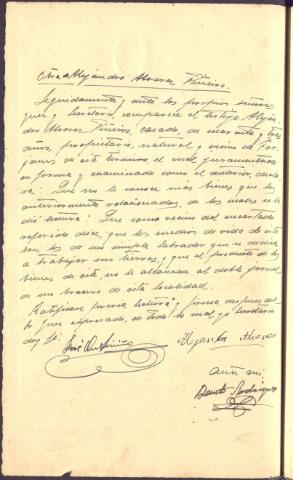 Otra: Alejandro Alvarez Piñeiro.
Seguidamente y ante los propios señores
Juez y Secretario, comparecie el testigo Alejan
dro Alvarez Piñeiro, casado, de cuarenta y tres
años, propietario, natural y vecino de
de este término, el cual juramentado
en forma y examinado como el anterior, decla
ra: Que no le conoce mas bienes que los
anteriormente relacionados, de los cuales se le
dió lectura: Que como vecino del encartado
referido dice, que los medios de vida de éste
son los de un simple labrador que se dedica
a trabajar sus tierras, y que el producto de los
bienes de éste, no le alcanzan al doble jornal
de un bracero de esta localidad.
Ratifican previa lectura y firma despues del
Sr Juez expresado, de todo lo cual, yo Secretario
doy fé.
José
Alejandro Alvarez
Ante mi,
Benito Rodriguez